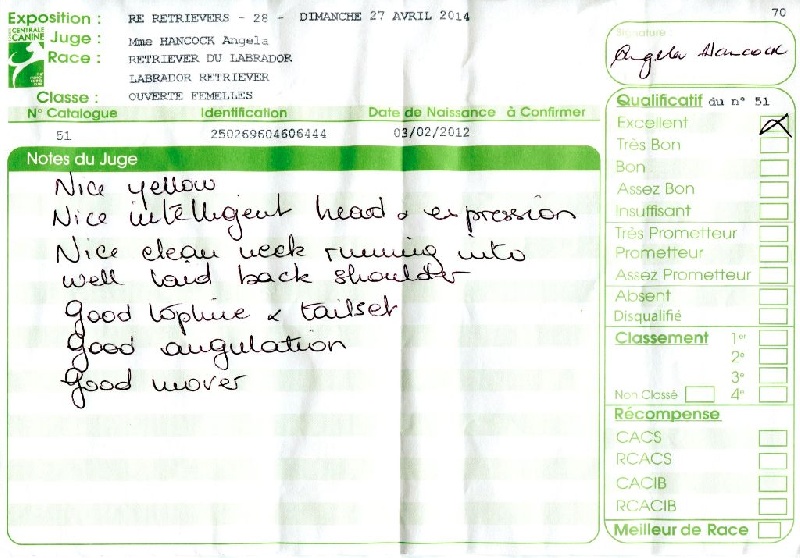 70
Exposition : RE RETRIEVERS - 28 - DIMANCHE 27 AVRIL 2014
CENTRALE CANINE
Juge : Mme HANCOCK Angela
Race : RETRIEVER DU LABRADOR
LABRADOR RETRIEVER
Classe : OUVERTE FEMELLES
N° Catalogue Identification Date de Naissance à Confirmer
51 250269604606444 03/02/2012
Notes du Juge
Nice yellow
Nice intelligent head & expression
Nice clean neck running into
well laid back shoulder
Good topline & tailset
Good angulation
Good mover
Signature
Angela Hancock
Qualificatif du n° 51
Excellent
Très Bon
Bon
Assez Bon
Insuffisant
Très Prometteur
Prometteur
Assez Prometteur
Absent
Disqualifié
Classement 1er
2e
3e
Non Classé 4e
Récompense
CACS
RCACS
CACIB
RCACIB
Meilleur de Race